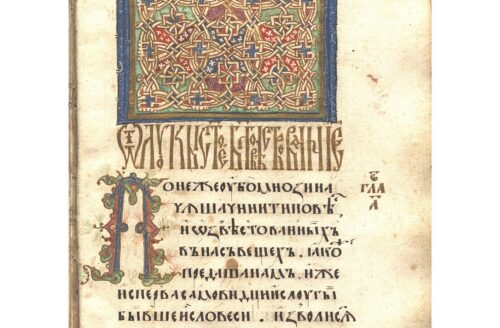 Ѿ ЛОУКЫ СТ҃ОЕ БЛ҃ГОВѢСТВОВАНЇЕ
Понеже оубо мноѕи на
чѧша чинити повѣ
и ѡ извѣстованныхъ
въ насъ вещехъ . ꙗко
предаша намъ , иже
исперва самовидци и слоугы
бывшеи словеси . и зволисѧ
гла
а